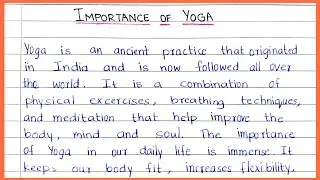 IMPORTANCE OF YOGA
Yoga is an ancient practice that originated
in India and is now followed all over
the world. It is a combination of
physical excercises, breathing techniques,
and meditation that help improve the
body, mind and soul. The importance
of Yoga in our daily life is immense. It
keeps our body fit, increases flexibility,